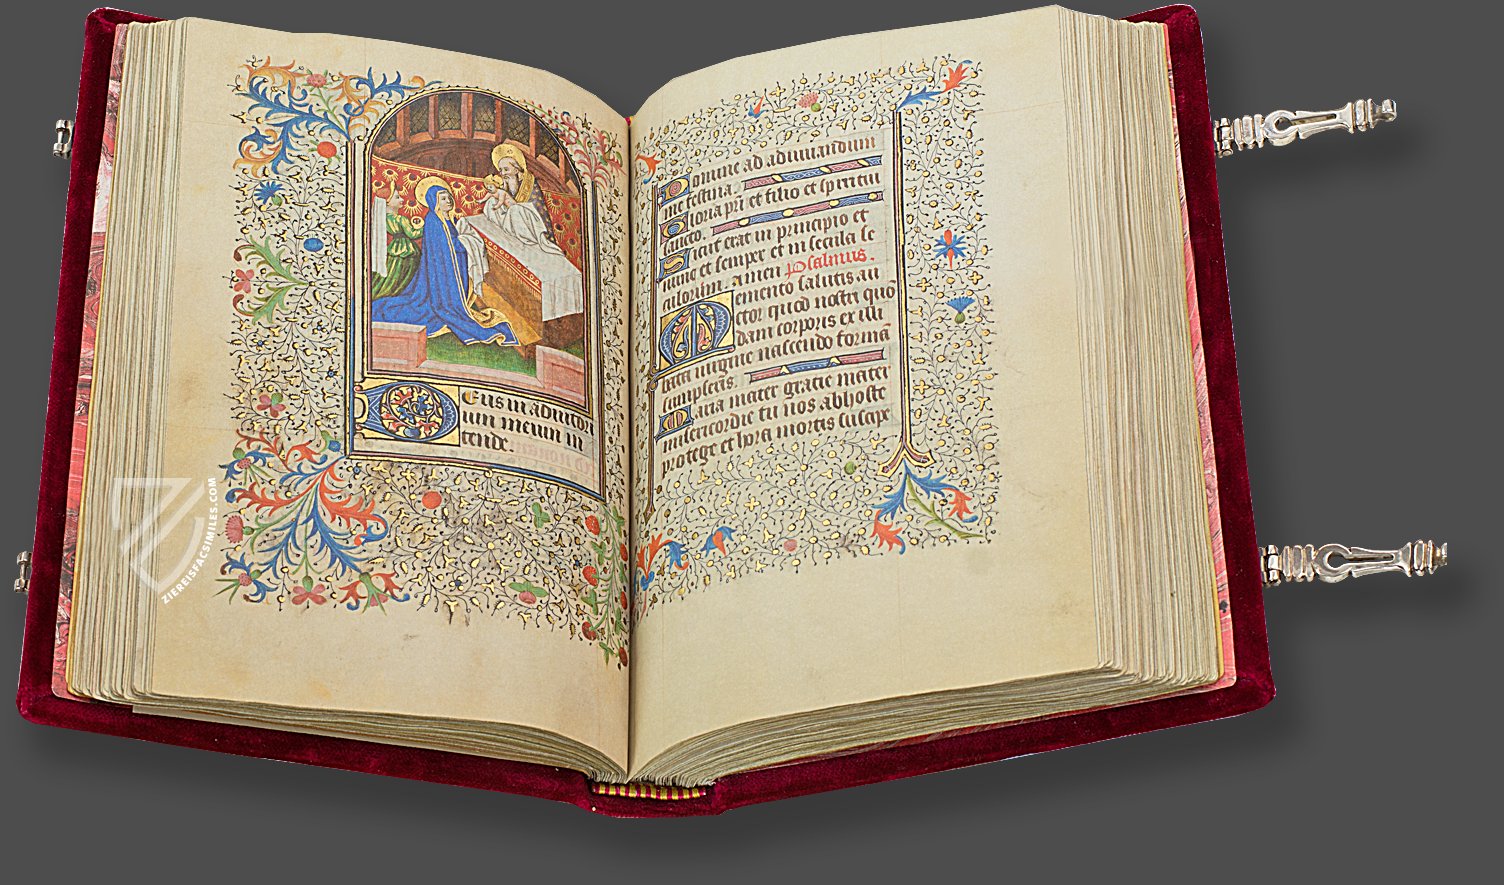 Deus in adiutori
um meum in
tende.
Domine ad adiuuandum
me festina.
Gloria pri et filio et spiritui
sancto.
Sicut erat in principio et
nunc et semper et in secula se
culorum. amen Psalmus.
Memento salutis au
ctor quod nostri quō
dam corporis ex illi
bata uirgine nascendo formā
sumpseris.
Maria mater gratie mater
misericordie tu nos ab hoste
protege et hora mortis suscipe
ZIEREISFACSIMILES.COM